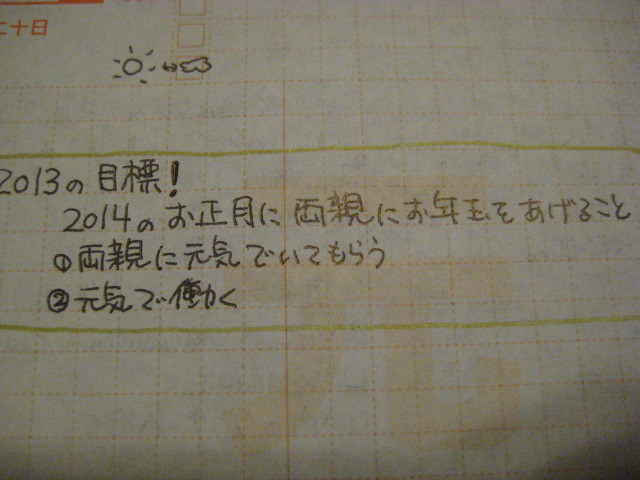 二十日
2013の目標!
2014のお正月に両親にお年玉をあげること
①両親に元気でいてもらう
②元気で働く